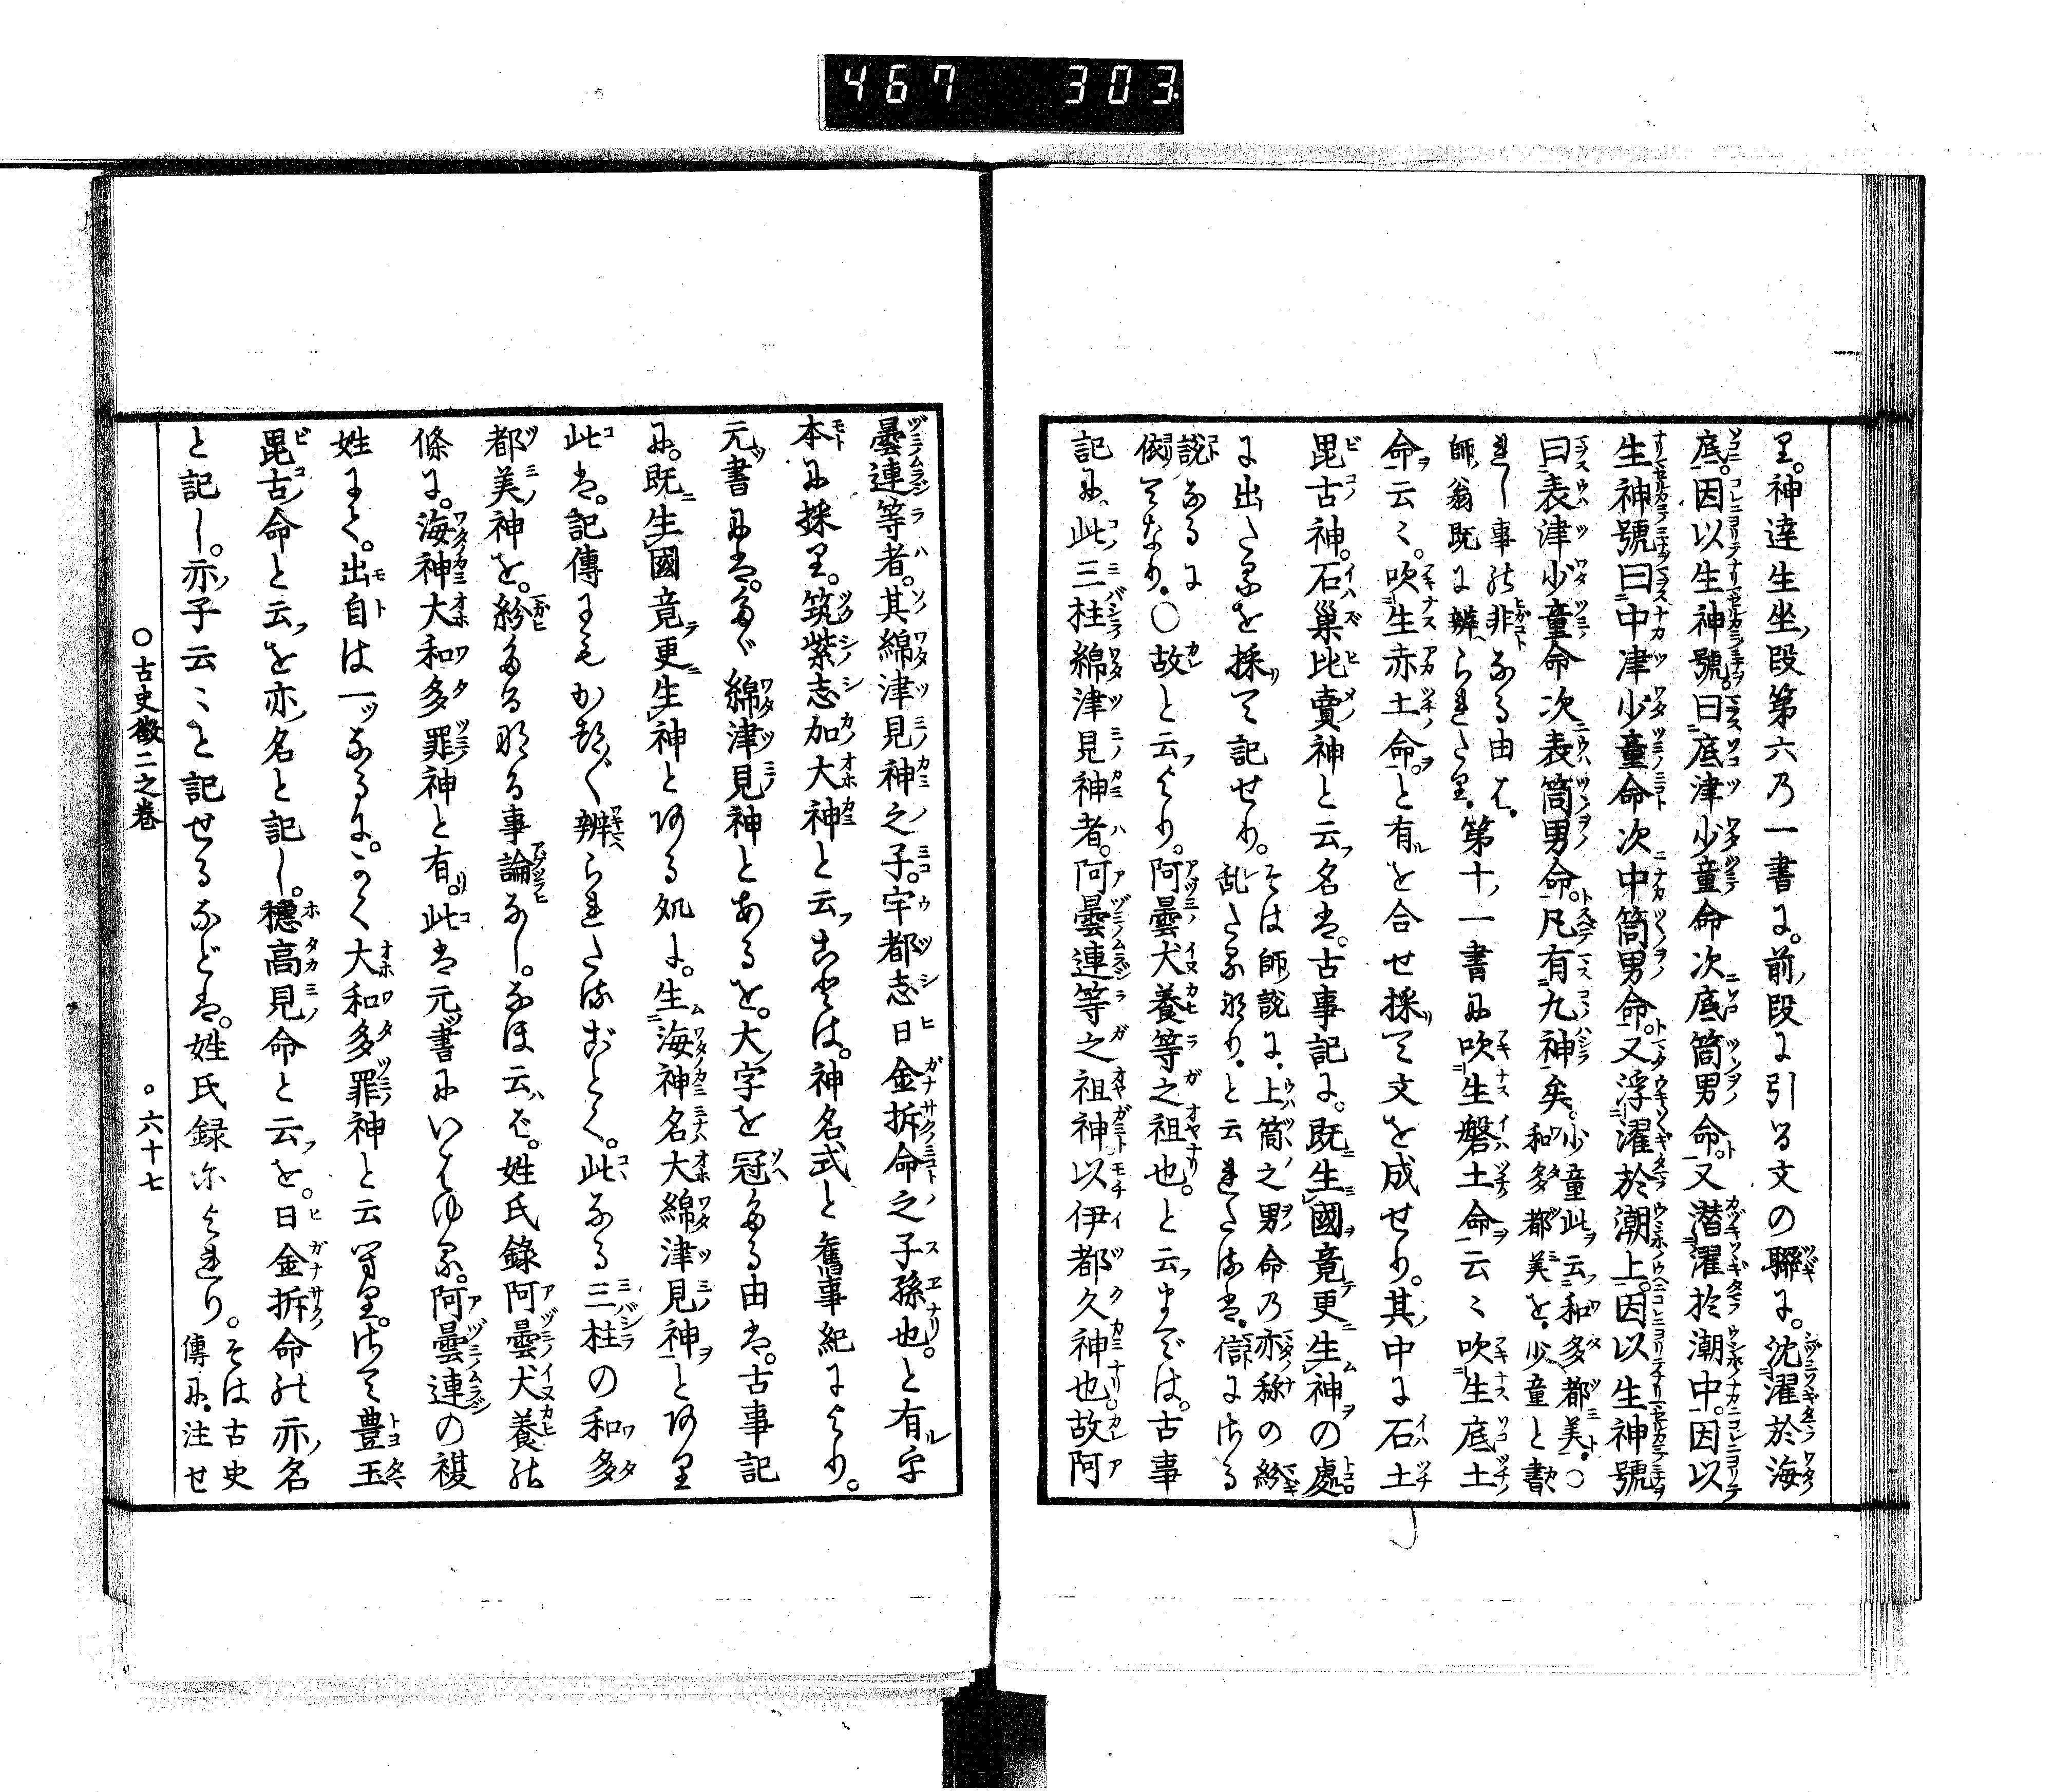 467 303
里。神達生坐段第六乃一書に。前段に引る文の聯に。沈濯於海
底。因以生神號。曰底津少童命次底筒男命。又潜濯於潮中。因以
生神號曰中津少童命次中筒男命。又浮濯於潮上。因以生神號
曰表津少童命次表筒男命。凡有九神矣。少童此云和多都美。○
和多都美を。少童と書
れし事の非なる由は。
師翁既に辨られたり。第十一書に吹生磐土命云々吹生底土
命云々。吹生赤土命。と有を合せ採て文を成せり。其中に石土
毘古神。石巢比賣神と云名は。古事記に。既生國竟更生神の處
に出たるを採て記せり。そは師説に。上筒之男命乃亦稱の紛
乱たるなり。と云れたるは。信にさる
説なるに
依てなり。○故と云より。阿曇犬養等之祖也。と云までは。古事
記に。此三柱綿津見神者。阿曇連等之祖神以伊都久神也故阿
曇連等者。其綿津見神之子。宇都志日金拆命之子孫也。と有字
本に採里。筑紫志加大神と云ことは。神名式と舊事紀により。
元書には。たゞ綿津見神とあるを。大字を冠たる由は。古事記
に。既生國竟更生神とある処に。生海神名大綿津見神とあり
此は。記傳にもかつ〴〵辨られたるごとく。此なる三柱の和多
都美神を。紛たるなる事論なし。なほ云はゞ。姓氏錄阿曇犬養の
條に。海神大和多罪神と有。此は元書にいはゆる。阿曇連の複
姓にて。出自は一ッなるに。かく大和多罪神と云り。さて豊玉
毘古命と云を亦名と記し。穗高見命と云を。日金拆命の亦名
と記し。亦子云々と記せるなどは。姓氏録によれり。そは古史
傳に。注せ
○古史徴二之卷
○六十七